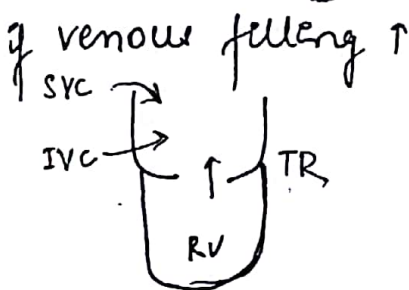 if venous filling ↑
SVC
IVC
TR
RV